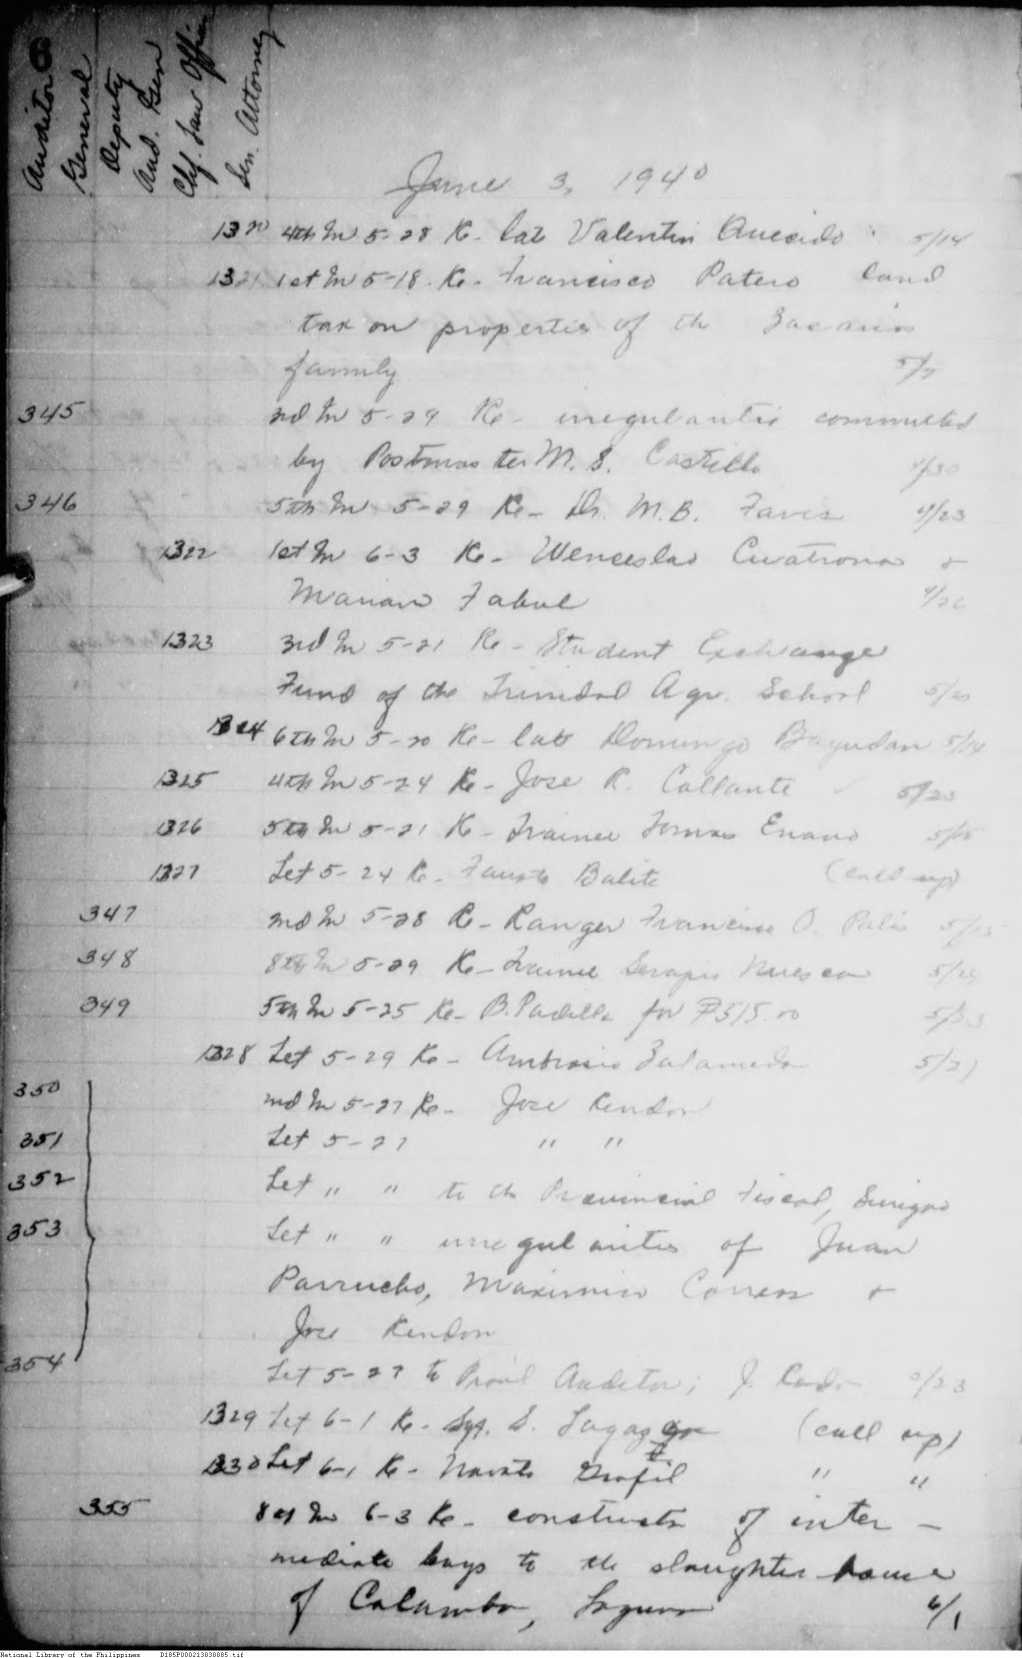 Auditor General
Deputy Aud. Gen
Chf. Law Officer
Gen. Attorney
June 3, 1940
1320 4th In 5-28 Re- lab Valentin 5/14
1321 1st In 5-18. Re- Francisco Patero land
tax on properties of the
family 5/7
345 2nd In 5-29 Re- irregularities committed
by Postmaster M. S. Castillo 4/30
346 5th In 5-29 Re- Dr. M.B. Faves 4/23
1322 1st In 6-3 Re- Wenceslao Cuatrona &
Marian Fabul 4/22
1323 3rd In 5-21 Re- Student Exchange
Fund of the Trinidad Agr. School
1324 6th In 5-20 Re- lab Domingo Bagudan 5/14
1325 4th In 5-24 Re- Jose R. Callante 5/23
1326 5th In 5-21 Re- Trainee Tomas Enano
1327 Let 5-24 Re- Fausto Balite (call up)
347 2nd In 5-28 Re- Ranger Francisco O. Palis
348 8th In 5-29 Re- Trainee
349 5th In 5-25 Re- B. Padilla for ₱515.00
1328 Let 5-29 Re- Ambrosio
350 2nd In 5-27 Re- Jose Rendon
351 Let 5-27 " "
352 Let " " to the Provincial Fiscal, Surigao
353 Let " " irregularities of Juan
Parrucho, Maximino Correos &
Jose Rendon
354 Let 5-27 to Prov'l Auditor; J.
1329 Let 6-1 Re- S. (call up)
1330 Let 6-1 Re- " "
355 8th In 6-3 Re- constructn of inter-
mediate bays to the slaughter house
of Calamba, Laguna 6/1
National Library of the Philippines D185P000213830085.tif